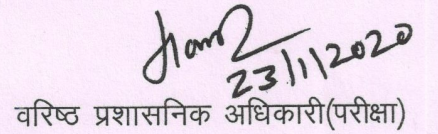 23/11/2020
वरिष्ठ प्रशासनिक अधिकारी(परीक्षा)